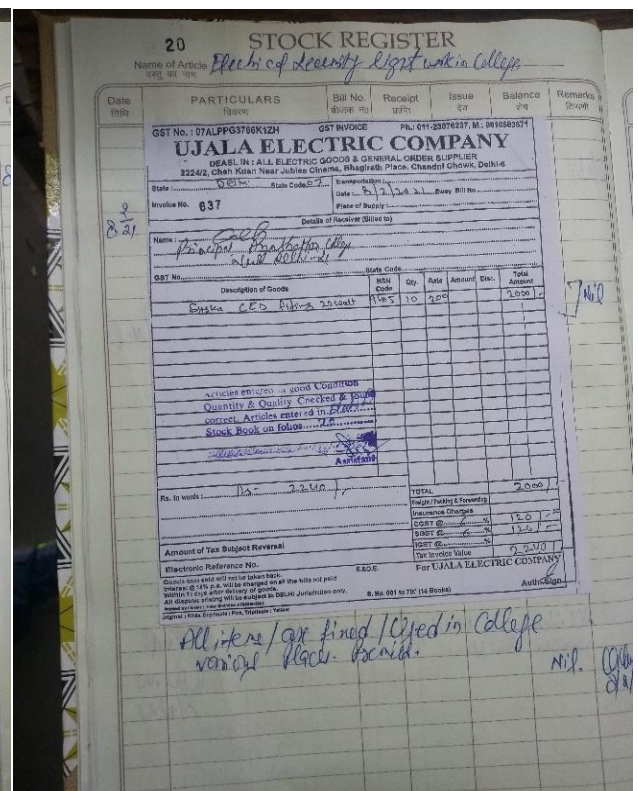 20 STOCK REGISTER
Name of Article Electrical Security light work in College
वस्तु का नाम
Date PARTICULARS Bill No. Receipt Issue Balance Remarks
तिथि विवरण बीजक न० प्राप्ति देय शेष टिप्पणी
GST No. : 07ALPPG3786K1ZH GST INVOICE Ph.: 011-23876237, M.:
UJALA ELECTRIC COMPANY
DEASL IN : ALL ELECTRIC GOODS & GENERAL ORDER SUPPLIER
2224/2, Chah Kuan Near Jubilee Cinema, Bhagirath Place, Chandni Chowk, Delhi-6
State : Delhi State Code 07 Transportation
Invoice No. 637 Date 8/2/2021 Eway Bill No
Place of Supply
Details of Receiver (Billed to)
Name :
Principal College
New Delhi
GST No. State Code
Description of Goods HSN Code Qty. Rate Amount Disc. Total Amount
LED 10 200 2000/-
Nil
Articles entered in good Condition
Quantity & Quality Checked & found
correct. Articles entered in
Stock Book on folios
Assistant
Rs. in words : Rs- 2240/-
TOTAL 2000/-
Freight / Packing & Forwarding
Insurance Charges
CGST @ 6 % 120/-
SGST @ 6 % 120/-
IGST @ %
Amount of Tax Subject Reversal Tax Invoice Value 2240/-
Electronic Reference No. E.&O.E. For UJALA ELECTRIC COMPANY
Goods once sold will not be taken back.
Interest @ 18% p.a. will be charged on all the bills not paid
Within days after delivery of goods.
All disputes arising will be subject to DELHI Jurisdiction only. B. No. 001 to 700 (14 Books) Auth. Sign
Original : White, Duplicate : Pink, Triplicate : Yellow
All items are fixed / Used in College
various place
Nil.